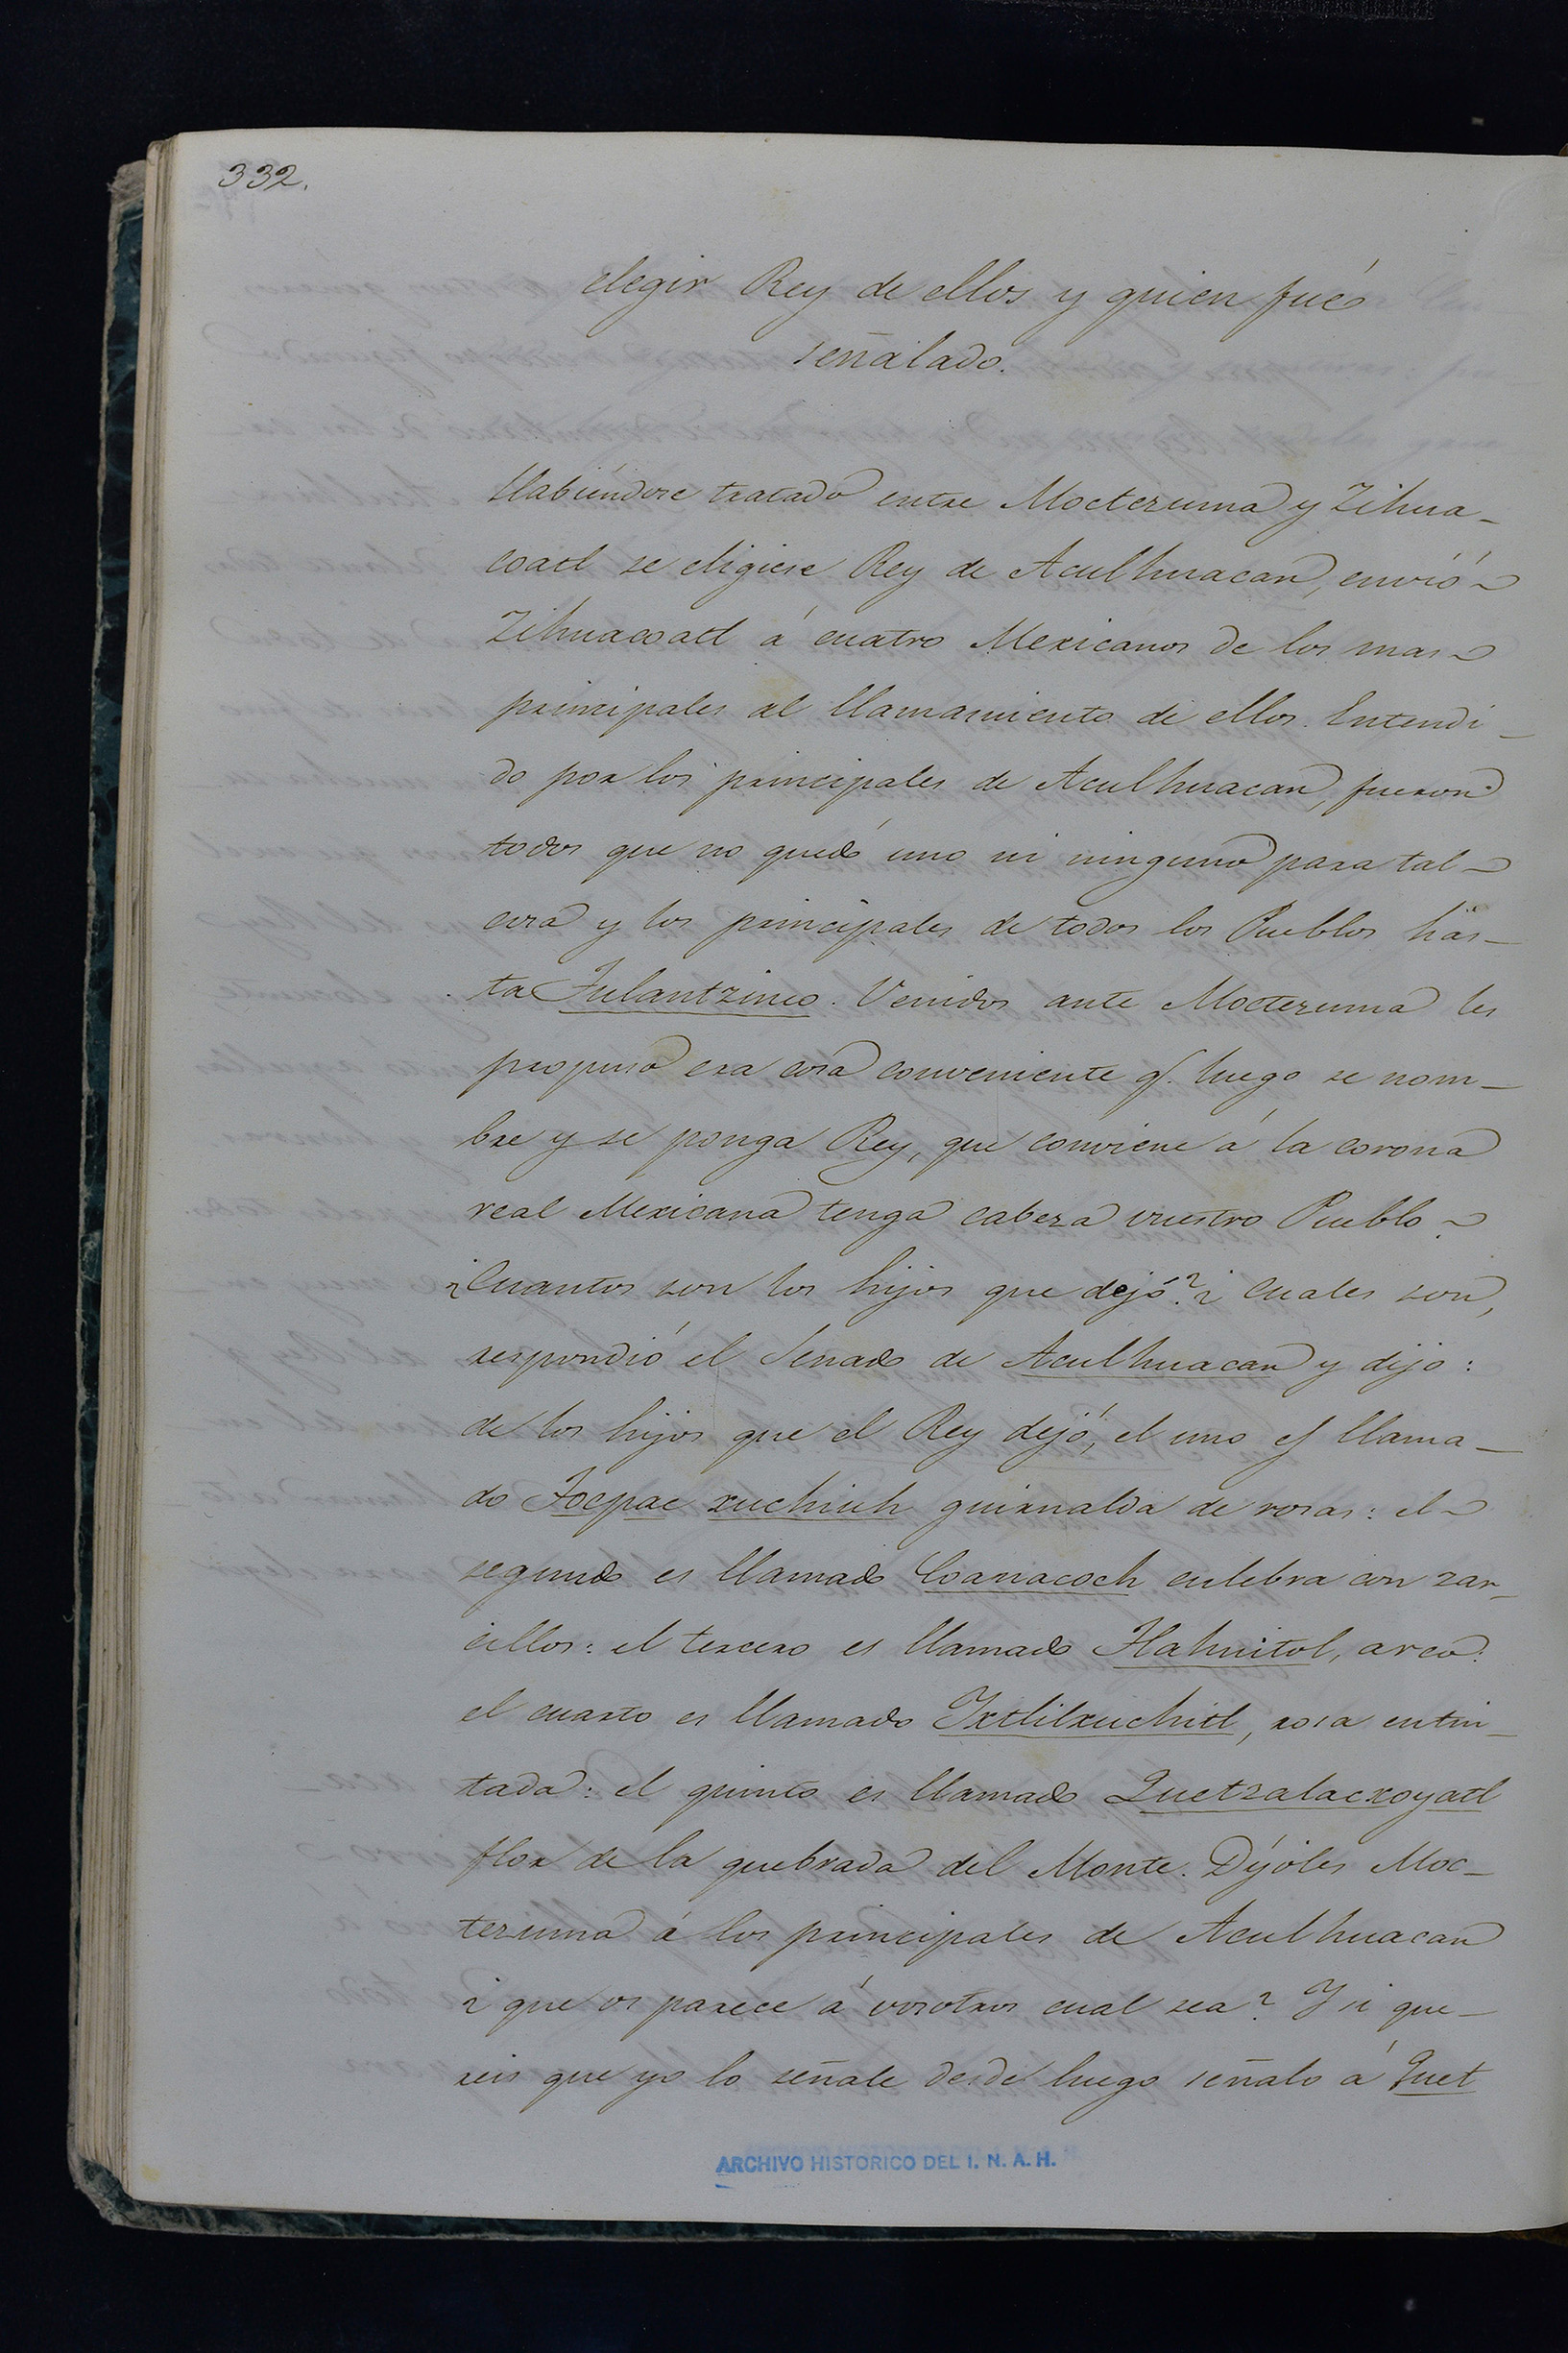 332.
elegir Rey de ellos y quien fué
señalado.
Habiéndose tratado entre Moctezuma y Zihua-
coatl se eligiese Rey de Aculhuacan, envió
Zihuacoatl á cuatro Mexicanos de los mas
principales al llamamiento de ellos. Entendi-
do por los principales de Aculhuacan, fueron
todos que no quedó uno ni ninguno para tal
cosa y los principales de todos los Pueblos has-
ta Tulantzinco. Venidos ante Moctezuma les
propuso era cosa conveniente q. luego se nom-
bre y se ponga Rey, que conviene á la corona
real Mexicana tenga cabeza vuestro Pueblo.
¿Cuantos son los hijos que dejó? ¿Cuales son,
respondió el Senado de Aculhuacan y dijo:
de los hijos que el Rey dejó, el uno es llama-
do Tocpac xuchiuh guirnalda de rosas: el
segundo es llamado Coanacoch culebra con zar-
cillos: el tercero es llamado Tlahuitol, arco:
el cuarto es llamado Ixtlilxuchitl, rosa entin-
tada: el quinto es llamado Quetzalacxoyatl
flor de la quebrada del Monte. Díjoles Moc-
tezuma á los principales de Aculhuacan
¿que os parece á vosotros cual sea? Y si que-
reis que yo lo señale desde luego señalo á Quet
ARCHIVO HISTORICO DEL I. N. A. H.